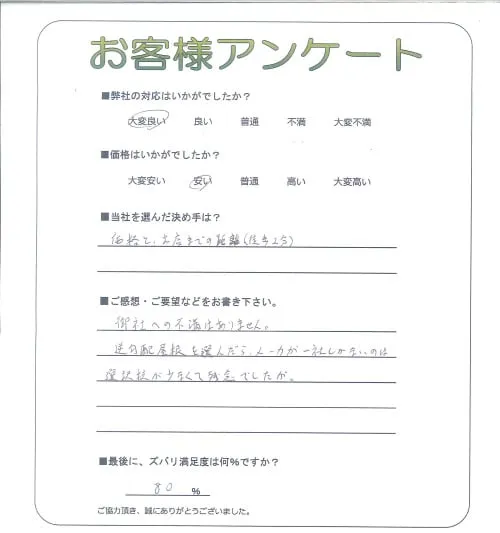 お客様アンケート
■弊社の対応はいかがでしたか?
大変良い 良い 普通 不満 大変不満
■価格はいかがでしたか?
大変安い 安い 普通 高い 大変高い
■当社を選んだ決め手は?
価格と、お店までの距離(徒歩2分)
■ご感想・ご要望などをお書き下さい。
御社への不満はありません。
逆勾配屋根を選んだら、メーカーが一社しかないのは
選択枝が少なくて残念でしたが。
■最後に、ズバリ満足度は何%ですか?
80 %
ご協力頂き、誠にありがとうございました。